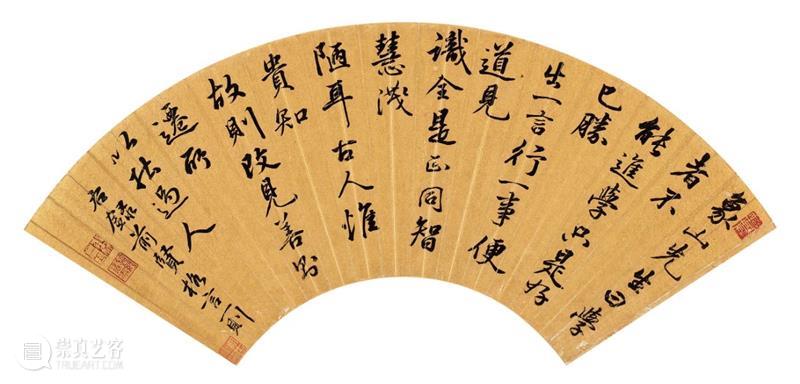 象山先生曰學
者不
能進學只是好
已勝
出一言行一事便
道見
識全是正同智
慧淺
陋耳古人惟
貴知
故則改見善則
遷所
以拔過人
右錄前賢格言
崇真艺客
TRUEART.COM